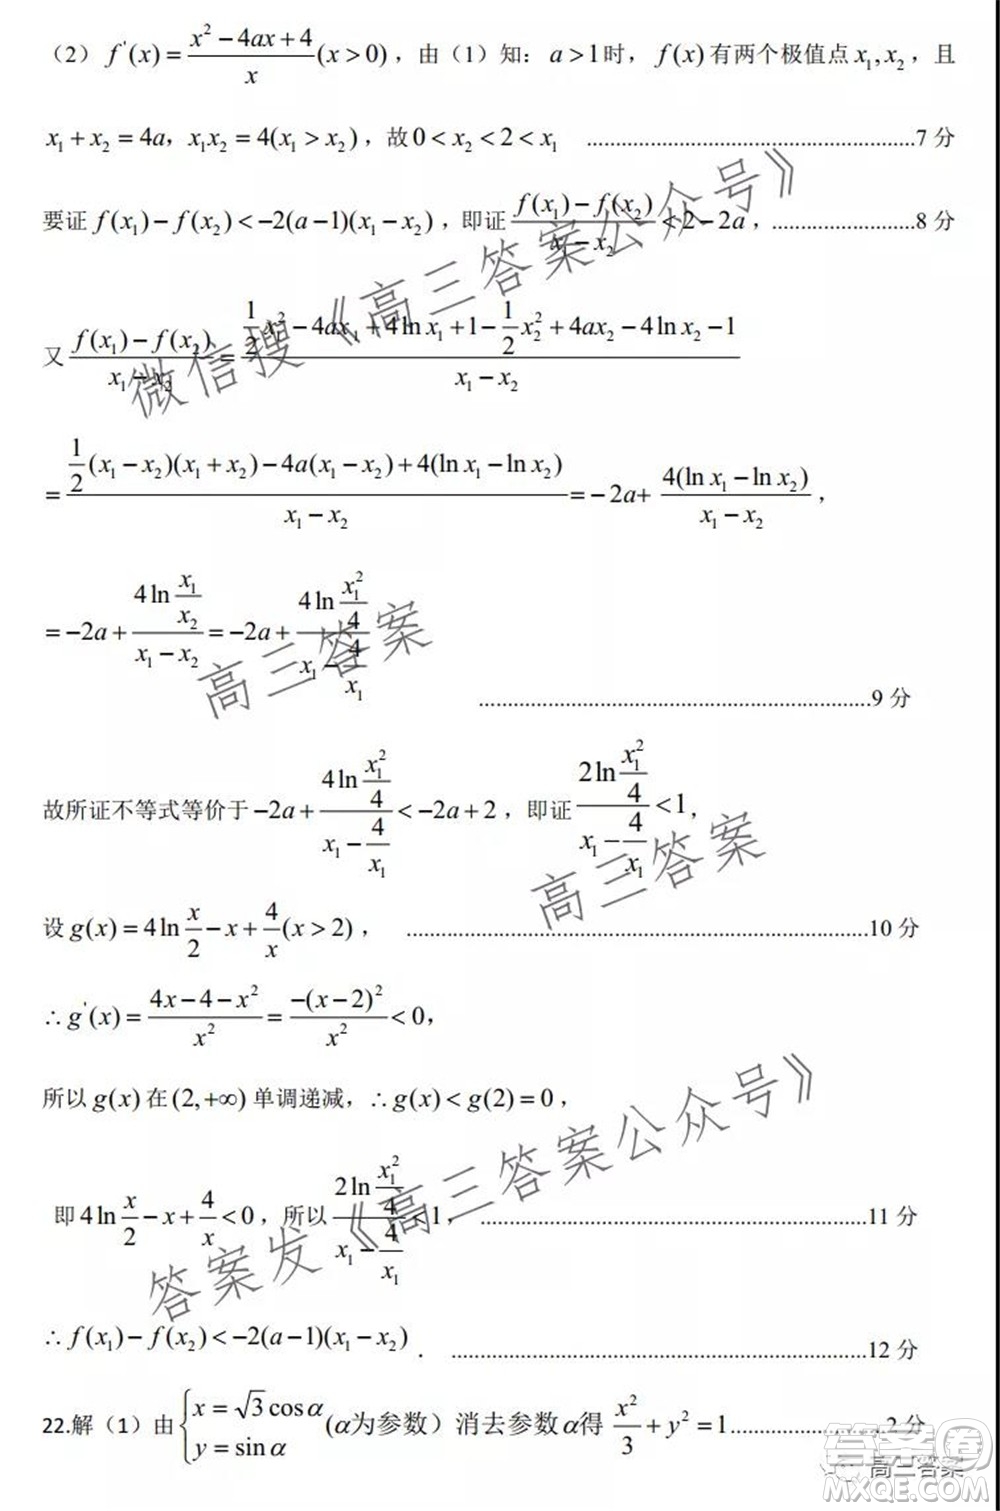 (2) f'(x)=(x²-4ax+4)/x (x>0)，由（1）知：a>1时，f(x)有两个极值点x₁,x₂，且
x₁+x₂=4a，x₁x₂=4(x₁>x₂)，故0<x₂<2<x₁ ........................7 分
要证 f(x₁)-f(x₂)<-2(a-1)(x₁-x₂)，即证 (f(x₁)-f(x₂))/(x₁-x₂)<2-2a，........................8 分
又 (f(x₁)-f(x₂))/(x₁-x₂)=(1/2 x₁²-4ax₁+4lnx₁+1-1/2 x₂²+4ax₂-4lnx₂-1)/(x₁-x₂)
=(1/2(x₁-x₂)(x₁+x₂)-4a(x₁-x₂)+4(lnx₁-lnx₂))/(x₁-x₂)=-2a+4(lnx₁-lnx₂)/(x₁-x₂)，
=-2a+(4ln(x₁/x₂))/(x₁-x₂)=-2a+(4ln(x₁²/4))/(x₁-4/x₁)
........................9 分
故所证不等式等价于-2a+(4ln(x₁²/4))/(x₁-4/x₁)<-2a+2，即证 (2ln(x₁²/4))/(x₁-4/x₁)<1，
设g(x)=4ln(x/2)-x+4/x(x>2)， ........................10 分
∴g'(x)=(4x-4-x²)/x²=(-(x-2)²)/x²<0，
所以g(x)在(2,+∞)单调递减，∴g(x)<g(2)=0，
即4ln(x/2)-x+4/x<0，所以 (2ln(x₁²/4))/(x₁-4/x₁)<1， ........................11 分
∴f(x₁)-f(x₂)<-2(a-1)(x₁-x₂)． ........................12 分
22.解（1）由{x=√3cosα y=sinα (α为参数）消去参数α得 x²/3+y²=1........................2 分
微信搜《高三答案公众号》
高三答案
高三答案
答案发《高三答案公众号》
高三答案
答案圈
MXQE.COM